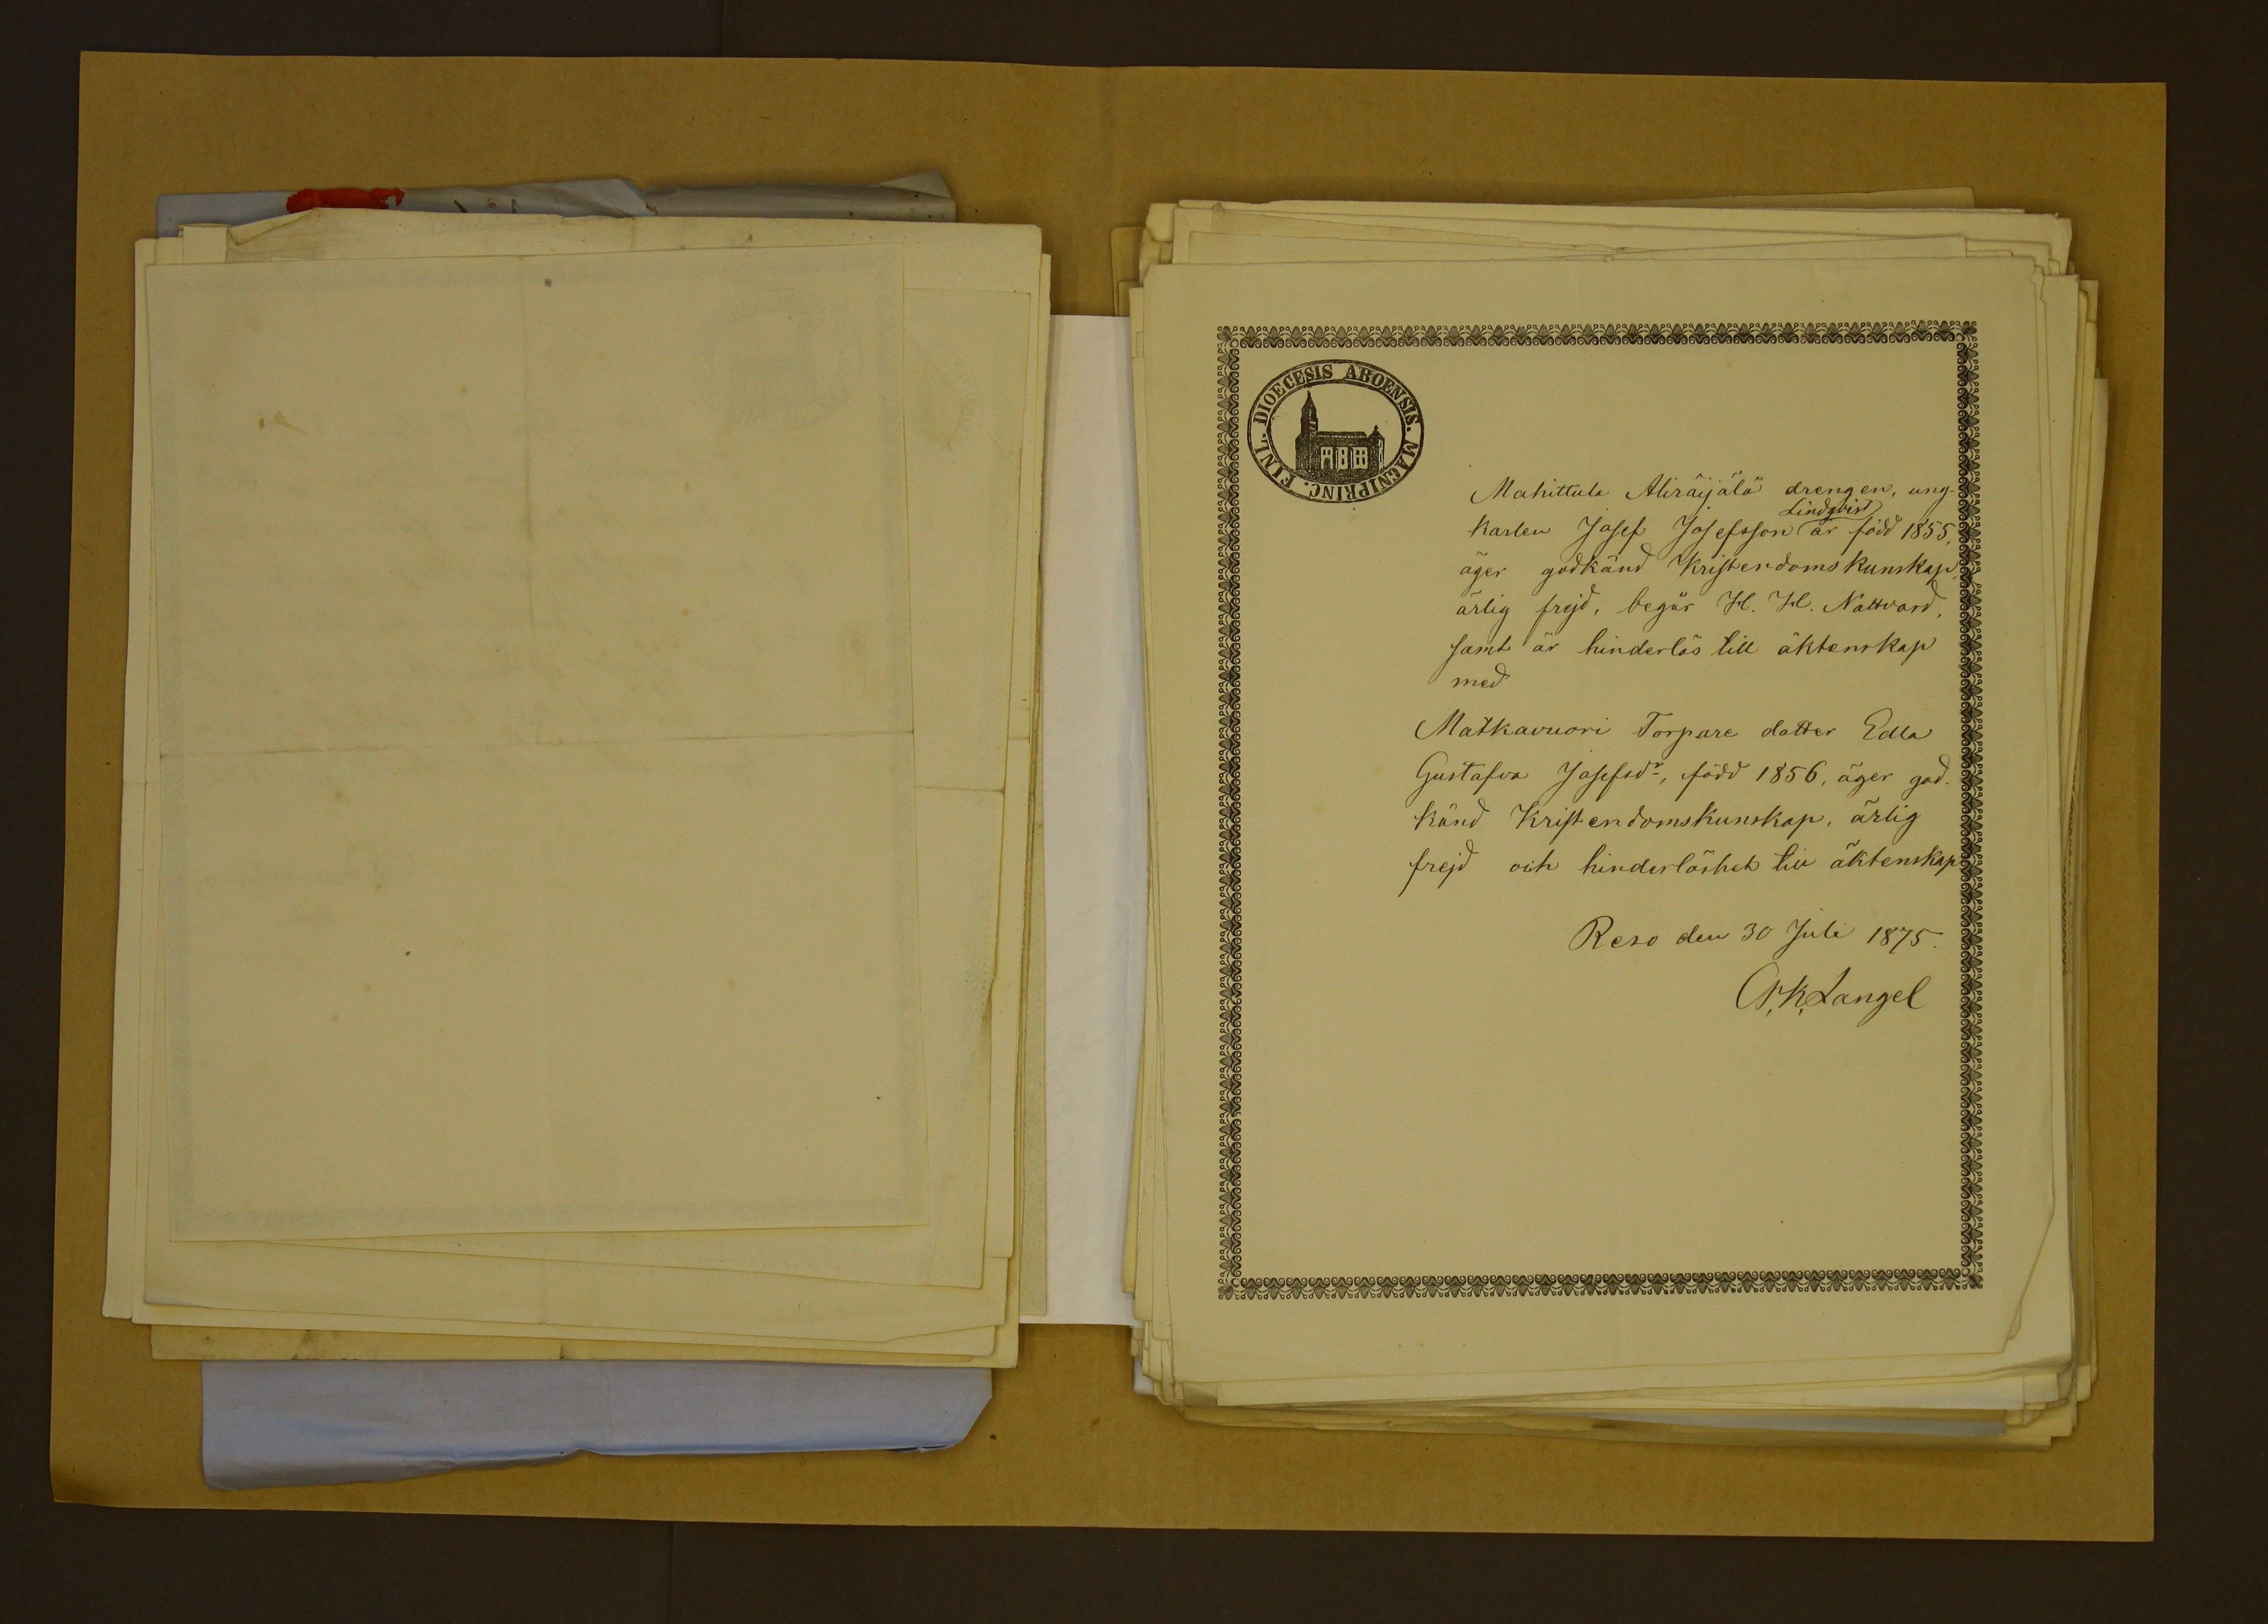 DIOECESIS ABOENSIS. MAGNIPRINC. FINL.
Mahittula Aliräijälä drengen, ung-
Lindqvist
karlen Josef Josefsson är född 1855,
äger godkänd Kristendomskunskap,
ärlig frejd, begår H. H. Nattvard,
samt är hinderlös till äktenskap
med
Matkavuori Torpare dotter Edla
Gustafva Josefsdr, född 1856, äger god-
känd Kristendomskunskap, ärlig
frejd och hinderlöshet till äktenskap
Reso den 30 Juli 1875.
K. Langel